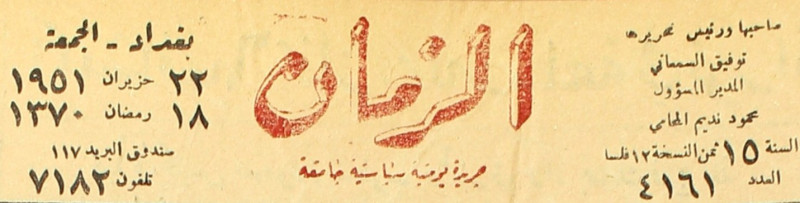 صاحبها ورئيس تحريرها
توفيق السمعاني
المدير المسؤول
محمود نديم المحامي
السنة ١٥ ثمن النسخة ١٢ فلسا
العدد ٤١٦١
الزمان
جريدة يومية سياسية جامعة
بغداد - الجمعة
٢٢ حزيران ١٩٥١
١٨ رمضان ١٣٧٠
صندوق البريد ١١٧
تلفون ٧١٨٢